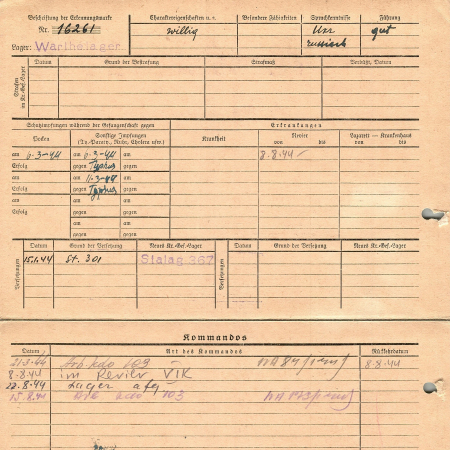 Beschriftung der Erkennungsmarke
Nr. 16261
Lager: Warthelager
Charaktereigenschaften u. s.
willig
Besondere Fähigkeiten
Sprachkenntnisse
russisch
Führung
gut
Strafen im Kr.-Gef.-Lager
Datum Grund der Bestrafung Strafmaß Verbüßt, Datum
Schutzimpfungen während der Gefangenschaft gegen
Erkrankungen
Pocken
Sonstige Impfungen
(Ty.-Paraty., Ruhr, Cholera usw.)
Krankheit
Revier
von bis
Lazarett — Krankenhaus
von bis
am 6.3-44 am 6.3-44 am
8.8.44
Erfolg gegen Typhus gegen
am am 11.3-44 am
Erfolg gegen Typhus gegen
am am am
Erfolg gegen gegen
am am
gegen gegen
Versetzungen
Datum Grund der Versetzung Neues Kr.-Gef.-Lager
Versetzungen
Datum Grund der Versetzung Neues Kr.-Gef.-Lager
15.1.44 St. 301 Stalag 367
Kommandos
Datum Art des Kommandos Rückkehrdatum
21-3-44 Arb. kdo 103 8-8-44
8-8-44 im Revier VIK
Lager
15.8.44 Arb kdo 103